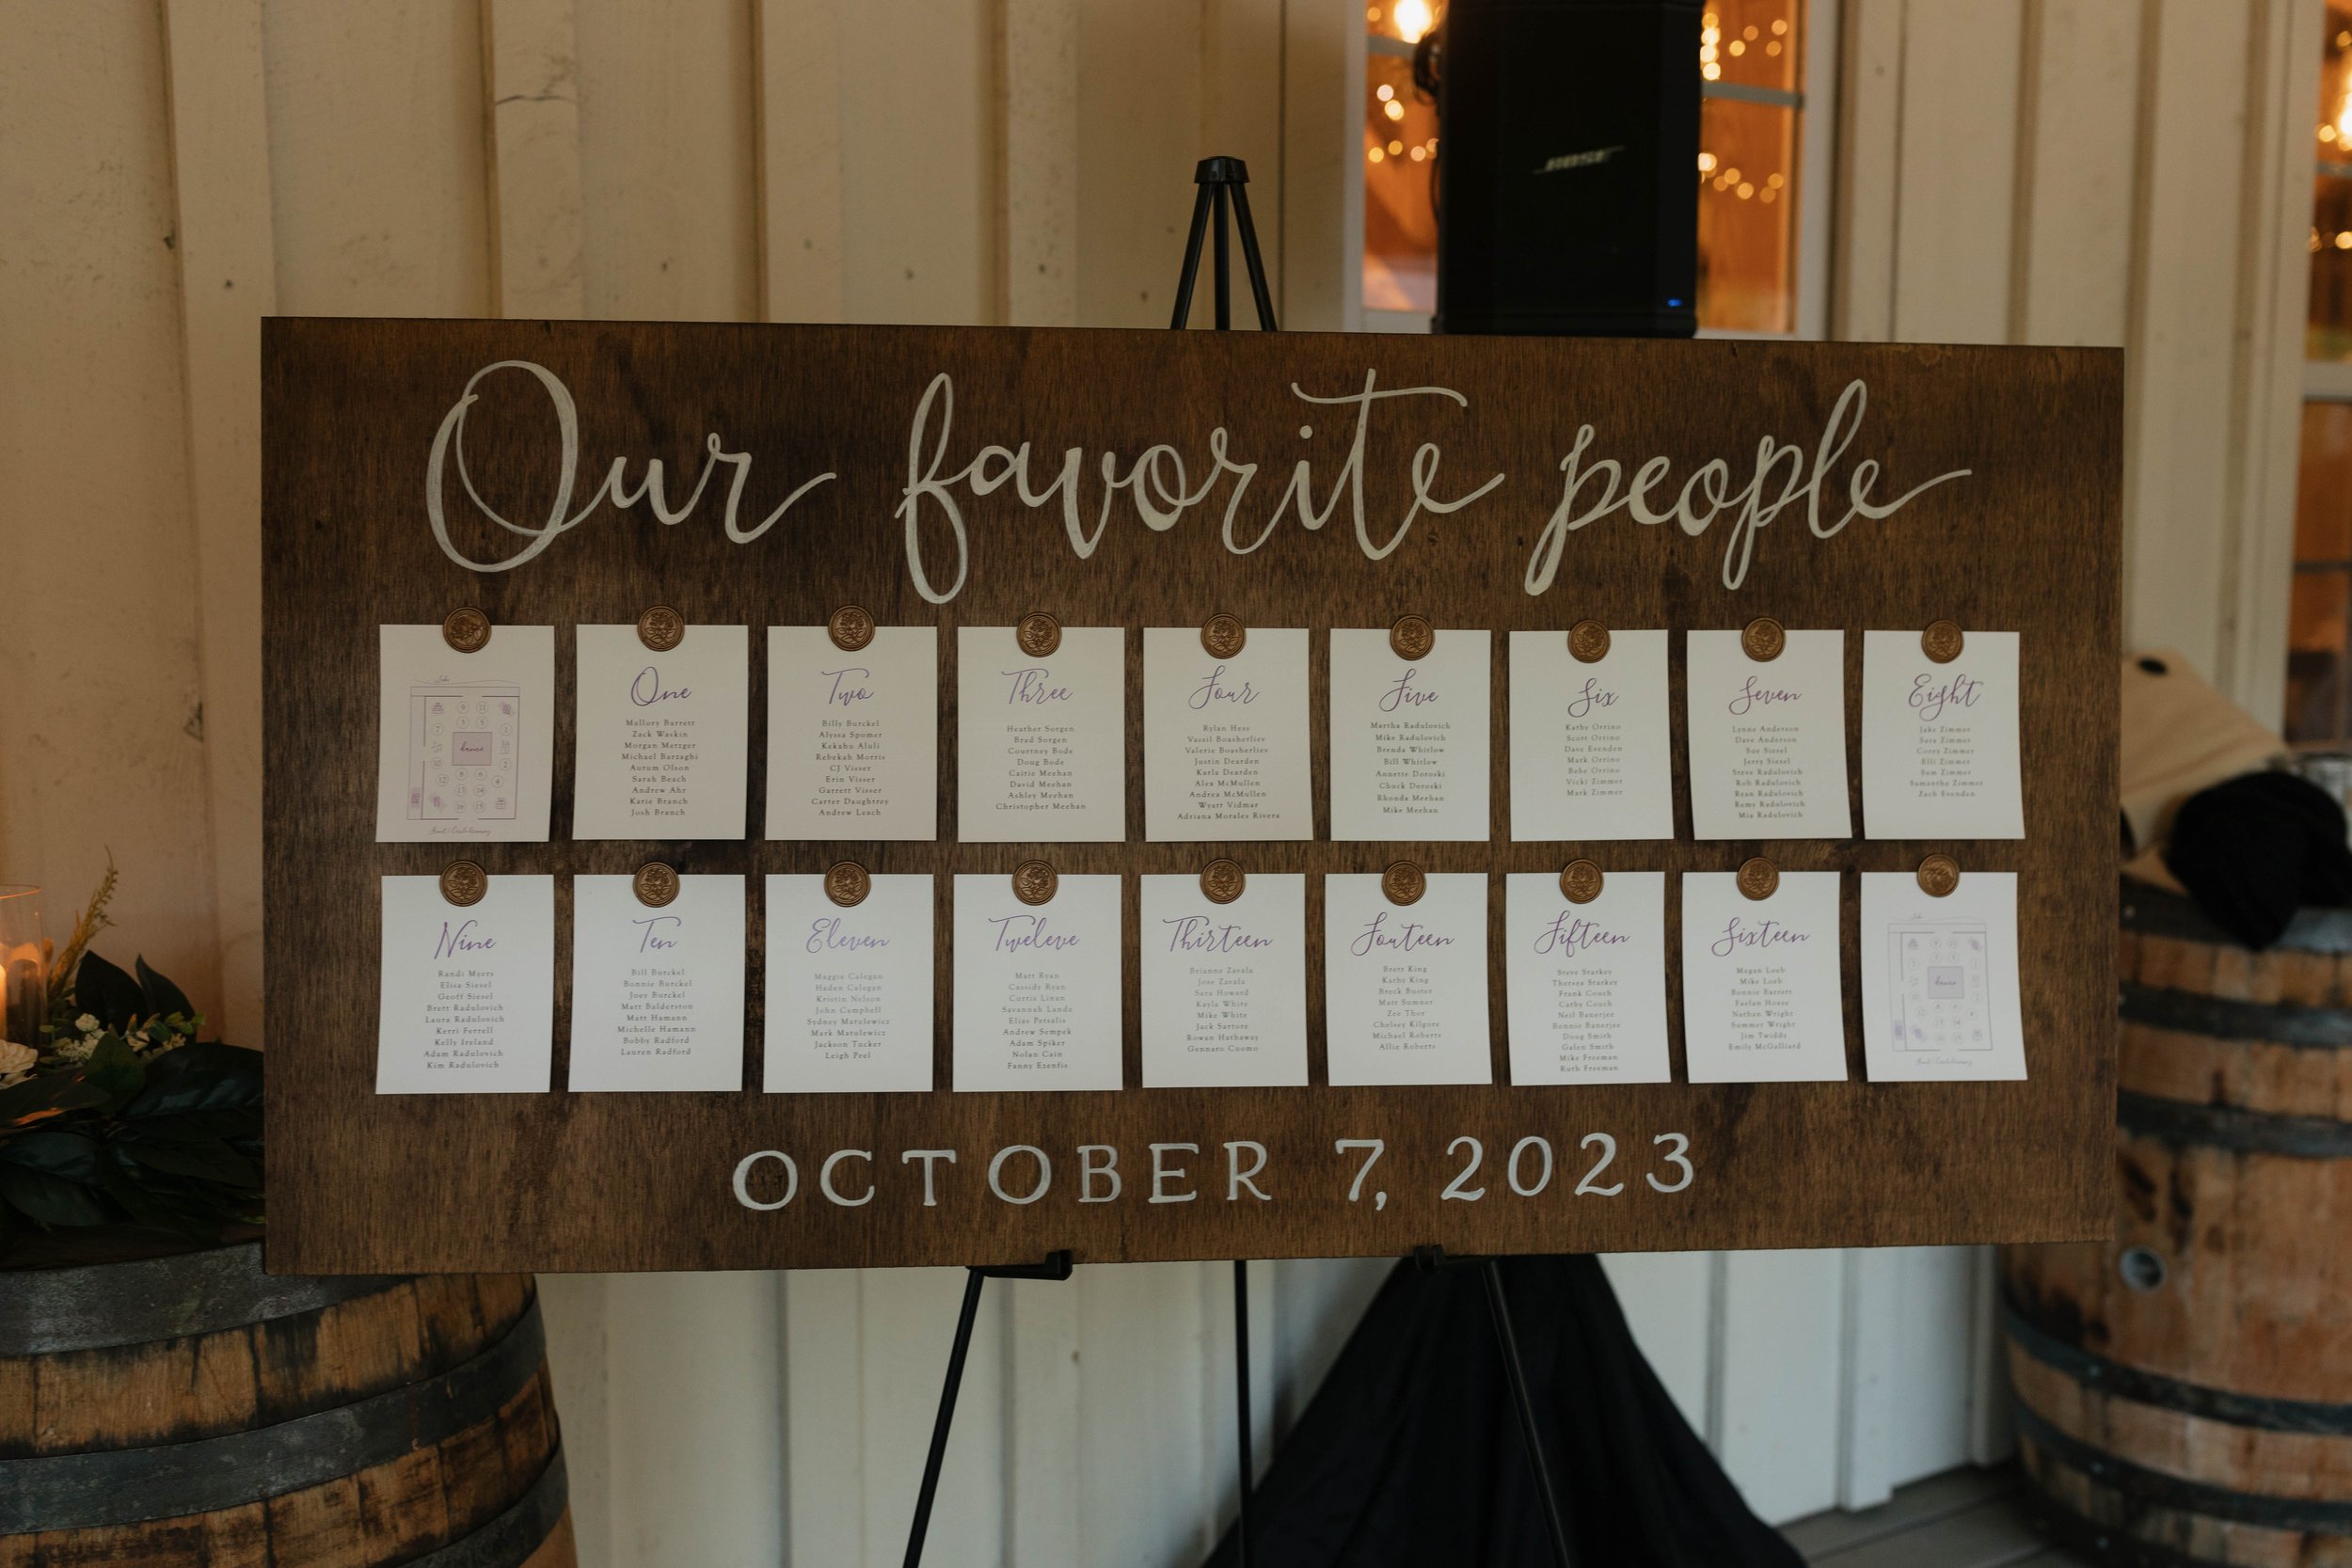 BOSE
Our favorite people
dance
One
Mallory Barrett
Zack Waskin
Morgan Metzger
Michael Barzaghi
Autum Olson
Sarah Beach
Andrew Ahr
Katie Branch
Josh Branch
Two
Billy Burckel
Alyssa Spomer
Kekahu Aluli
Rebekah Morris
CJ Visser
Erin Visser
Garrett Visser
Carter Daughtrey
Andrew Leach
Three
Heather Sorgen
Brad Sorgen
Courtney Bode
Doug Bode
Caitie Meehan
David Meehan
Ashley Meehan
Christopher Meehan
Four
Rylan Hess
Vassil Boasherliev
Valerie Boasherliev
Justin Dearden
Karla Dearden
Alex McMullen
Andrea McMullen
Wyatt Vidmar
Adriana Morales Rivera
Five
Martha Radulovich
Mike Radulovich
Brenda Whitlow
Bill Whitlow
Annette Doroski
Chuck Doroski
Rhonda Meehan
Mike Meehan
Six
Kathy Orrino
Scott Orrino
Dave Evenden
Mark Orrino
Bebe Orrino
Vicki Zimmer
Mark Zimmer
Seven
Lynne Anderson
Dave Anderson
Sue Siesel
Jerry Siesel
Steve Radulovich
Rob Radulovich
Ryan Radulovich
Remy Radulovich
Mia Radulovich
Eight
Jake Zimmer
Sara Zimmer
Corey Zimmer
Elli Zimmer
Sam Zimmer
Samantha Zimmer
Zach Evenden
Nine
Randi Myers
Elisa Siesel
Geoff Siesel
Brett Radulovich
Laura Radulovich
Kerri Ferrell
Kelly Ireland
Adam Radulovich
Kim Radulovich
Ten
Bill Burckel
Bonnie Burckel
Joey Burckel
Matt Balderston
Matt Hamann
Michelle Hamann
Bobby Radford
Lauren Radford
Eleven
Maggie Calegan
Haden Calegan
Kristin Nelson
John Campbell
Sydney Matulewicz
Mark Matulewicz
Jackson Tucker
Leigh Peel
Tweleve
Matt Ryan
Cassidy Ryan
Curtis Linan
Savannah Lande
Elias Petsalis
Andrew Sempek
Adam Spiker
Nolan Cain
Fanny Ezenfis
Thirteen
Brianne Zavala
Jose Zavala
Sara Howard
Kayla White
Mike White
Jack Sartore
Rowan Hathaway
Gennaro Cuomo
Fouteen
Brett King
Kathy King
Breck Buster
Matt Sumner
Zee Thor
Chelsey Kilgore
Michael Roberts
Allie Roberts
Fifteen
Steve Starkey
Theresa Starkey
Frank Couch
Cathy Couch
Neil Banerjee
Bonnie Banerjee
Doug Smith
Galen Smith
Mike Freeman
Ruth Freeman
Sixteen
Megan Loeb
Mike Loeb
Bonnie Barrett
Faelan Hosse
Nathan Wright
Summer Wright
Jim Twiddy
Emily McGalliard
dance
OCTOBER 7, 2023